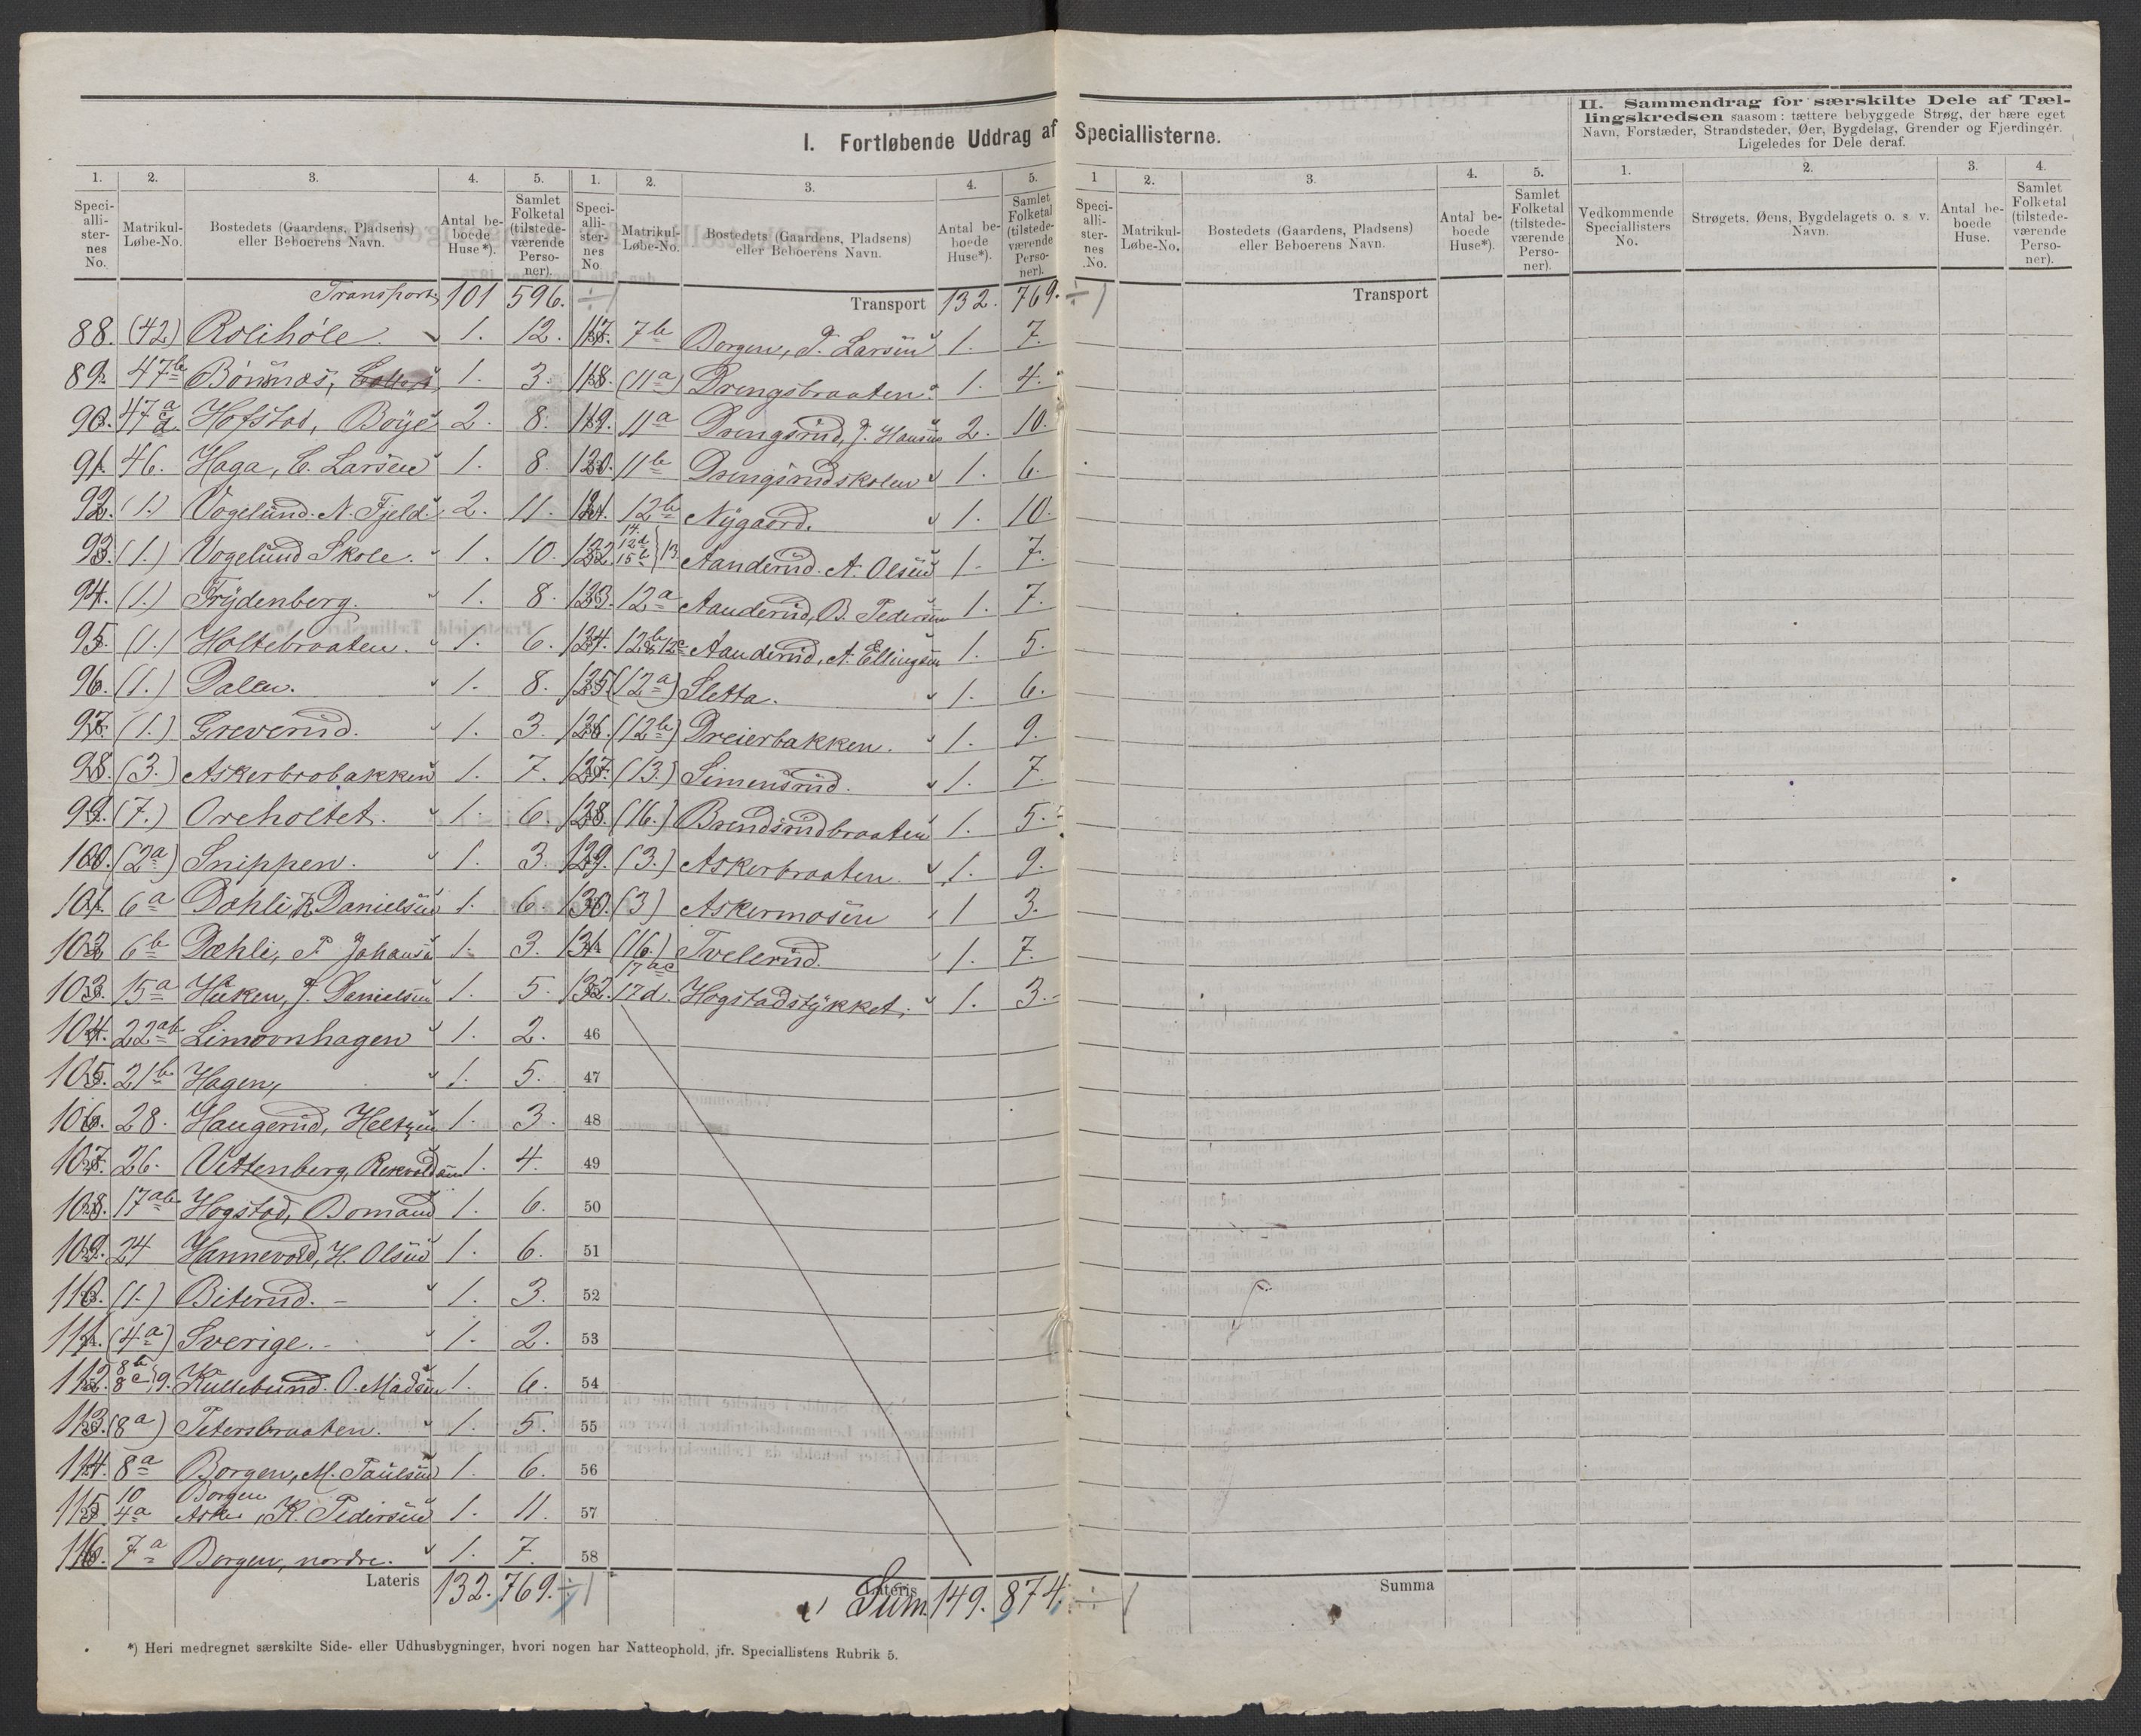 I. Fortløbende Uddrag af Speciallisterne.
II. Sammendrag for særskilte Dele af Tæl-
lingskredsen saasom: tættere bebyggede Strøg, der bære eget
Navn, Forstæder, Strandsteder, Øer, Bygdelag, Grender og Fjerdinger.
Ligeledes for Dele deraf.
1. 2. 3. 4. 5. 1. 2. 3. 4. 5. 1 2. 3. 4. 5. 1. 2. 3. 4.
Speci-alli-ster-nes No. Matrikul-Løbe-No. Bostedets (Gaardens, Pladsens) eller Beboerens Navn. Antal be-boede Huse*). Samlet Folketal (tilstede-værende Perso-ner).
Speci-alli-ster-nes No. Matrikul-Løbe-No. Bostedets (Gaardens, Pladsens) eller Beboerens Navn. Antal be-boede Huse*). Samlet Folketal (tilstede-værende Perso-ner).
Speci-alli-ster-nes No. Matrikul-Løbe-No. Bostedets (Gaardens, Pladsens) eller Beboerens Navn. Antal be-boede Huse*). Samlet Folketal (tilstede-værende Perso-ner).
Vedkommende Speciallisters No. Strøgets, Øens, Bygdelagets o. s. v. Navn. Antal be-boede Huse. Samlet Folketal (tilstede-værende Perso-ner).
Transport 101 596. ÷1
88. (42) Rolihøle. 1. 12.
89. 47b Bönsnæs, 1. 3.
90. 47a Hofstad, Boije 2. 8.
91. 46. Haga, C. Larsen 1. 8.
92. (1.) Vogelund. N. Fjeld. 2. 11.
93. (1.) Vogelund Skole. 1. 10.
94. (1.) Frydenberg. 1. 8.
95. (1.) Holtebraaten. 1. 6.
96. (1.) Dalen. 1. 8.
97. (1.) Greverud. 1. 3.
98. (3.) Askerbrobakken 1. 7.
99. (7.) Oreholtet. 1. 6.
100. (2a) Snippen. 1. 3.
101. 6a Dæhli, R. Danielsen 1. 6.
102. 6b Dæhli, P. Johans. 1. 3.
103. 15a Huken, J. Danielsen 1. 5.
104. 22ab Limovnhagen 1. 2.
105. 21b Hagen, 1. 5.
106. 28. Haugerud, Heltzen 1. 3.
107. 26. Vettenberg, 1. 4.
108. 17ab Hogstad, Bomand 1. 6.
109. 24 Hannevold, H. Olsen 1. 6.
110. (1.) Biterud. 1. 3.
111. (4a) Sverige. 1. 2.
112. 8b 8c, 9. Kullebund. O. Madsen 1. 6.
113. (8a) Petersbraaten. 1. 5.
114. 8a Borgen, M. Paulsen 1. 6.
115. 10 4a Borgen Asker, K. Pedersen 1. 11.
116. 7a Borgen, nordre. 1. 7.
Lateris 132. 769. ÷1
Transport 132. 769. ÷1
117. 7b Borgen, P. Larsen 1. 7.
118. (11a) Drengsbraaten. 1. 4.
119. 11a Drengsrud, J. Hansen 2. 10.
120. 11b Drengsrudskolen 1. 6.
121. 12b Nygaard. 1. 10.
122. 14. 12d 15b 13. Aanderud. A. Olsen 1. 7.
123. 12a Aanderud, B. Pedersen 1. 7.
124. 12b & 12c Aanderud, A. Ellingsen 1. 5.
125. (12a) Sletta. 1. 6.
126. (12b) Dreierbakken. 1. 9.
127. (13.) Simensrud. 1. 7.
128. (16.) Brendsrudbraaten 1. 5.
129. (3.) Askerbraaten. 1. 9.
130. (3) Askermosen 1 3.
131. (16.) Tvelerud. 1. 7.
132. 17ac 17d. Hogstadstykket. 1. 3.
46
47
48
49
50
51
52
53
54
55
56
57
58
Lateris Sum 149. 874. ÷1
Transport
Summa
*) Heri medregnet særskilte Side- eller Udhusbygninger, hvori nogen har Natteophold, jfr. Speciallistens Rubrik 5.